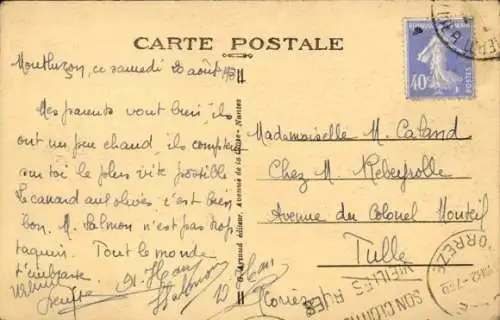 CARTE POSTALE
Montluçon, ce samedi 20 août
Mes parents vont bien, ils
ont un peu chaud, ils comptent
sur toi le plus vite possible
Le canard aux olives s'est bien
bon. M. Salmon n'est pas trop
taquin. Tout le monde
t'embrasse
Salmon
Mademoiselle M. Caland
Chez M. Rebeyrolle
Avenue du Colonel Monteil
Tulle
Corrèze
40c
POSTES
G. Arnaud éditeur, Avenue de la Nantes
CORREZE
12-7
VIEILLES RUES
SON